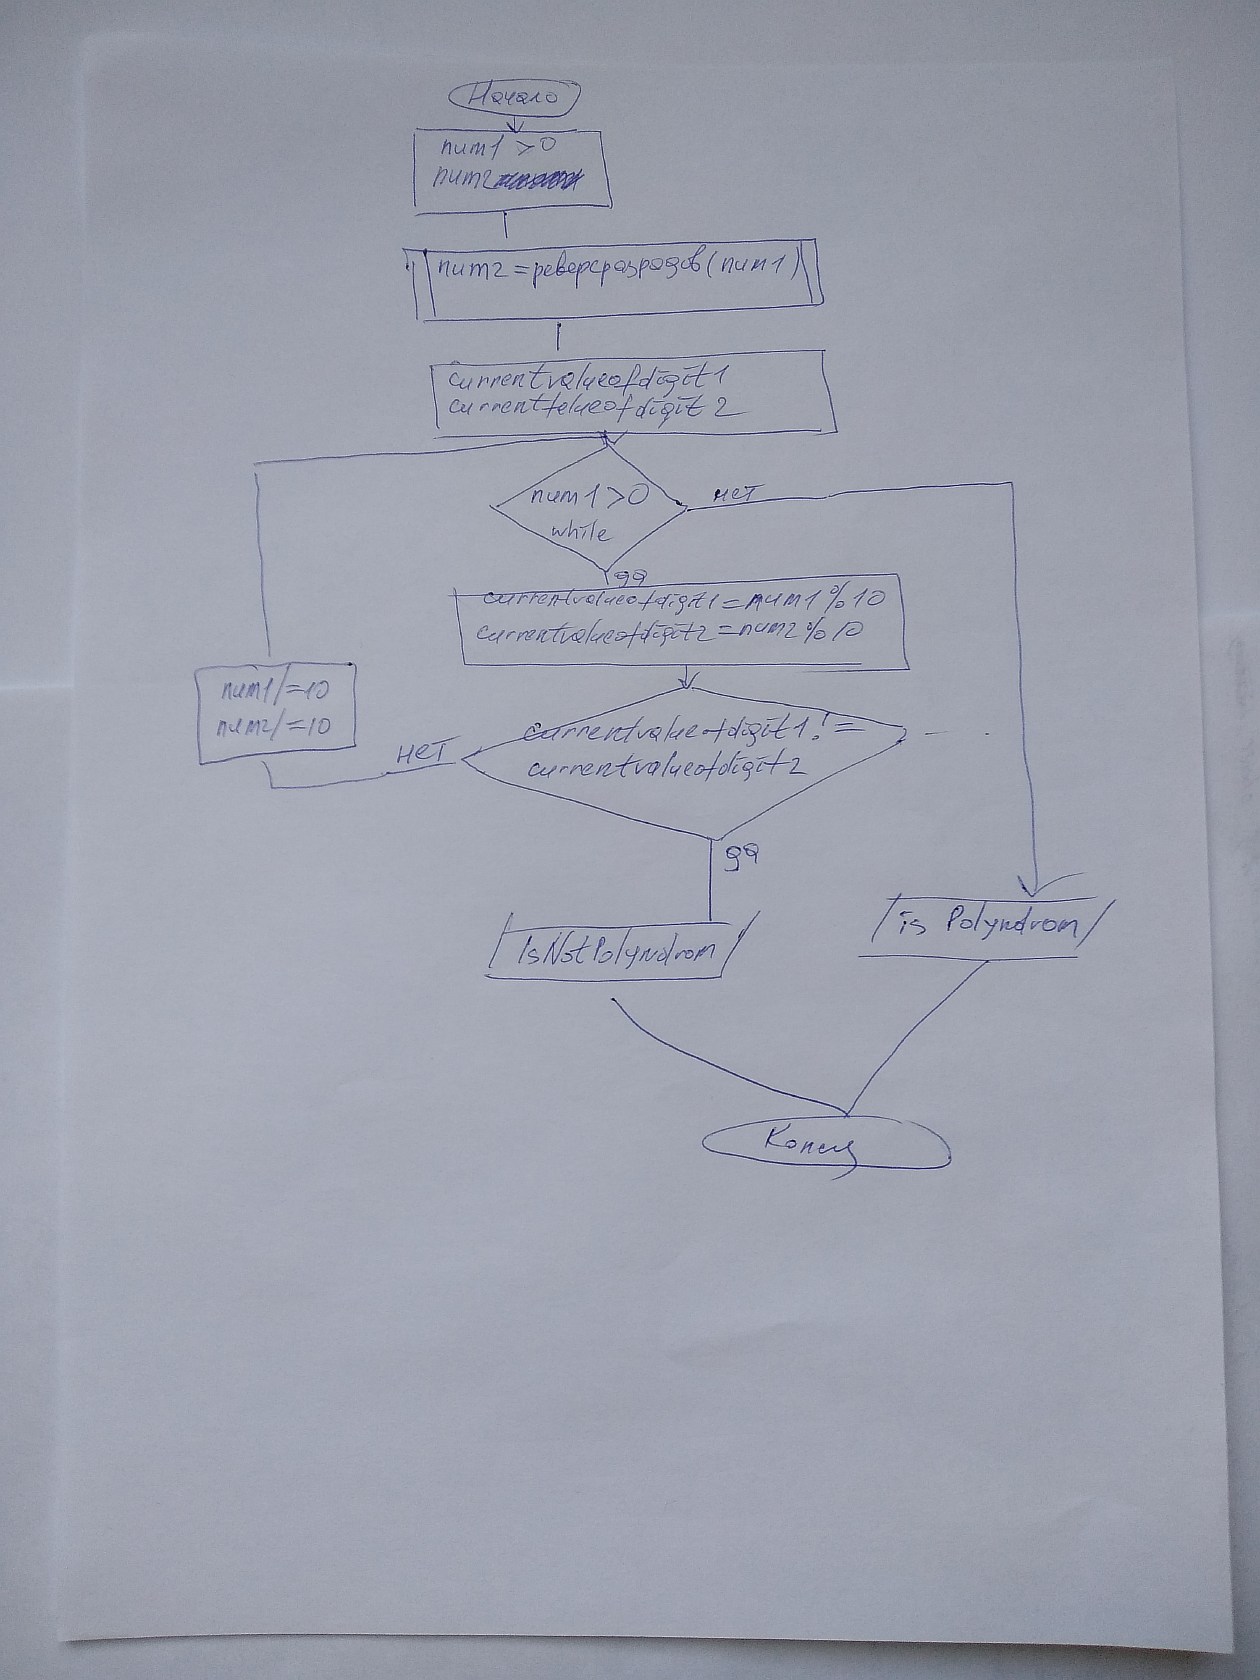 Начало
num1 > 0
num2
num2 = реверсразрядов(num1)
currentvalueofdigit1
currentvelueofdigit2
num1 > 0
нет
while
да
currentvalueofdigit1 = num1 % 10
currentvalueofdigit2 = num2 % 10
num1 /= 10
num2 /= 10
currentvalueofdigit1 !=
нет
currentvalueofdigit2
да
is Polyndrom
IsNotPolyndrom
Конец